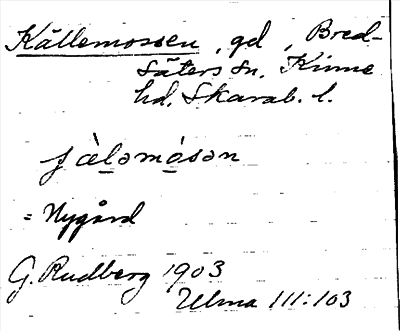 Källemossen, gd, Bred-
säters sn. Kinne
hd. Skarab. l.
= Nygård
G. Rudberg 1903
Ulma 111:103